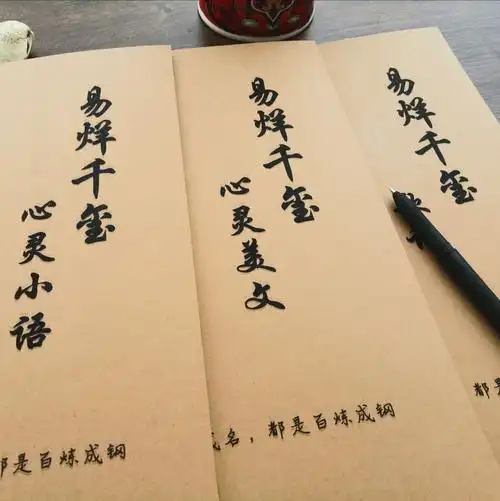 易烊千玺
心灵小语
都是百炼成钢
易烊千玺
心灵美文
名，都是百炼成钢
易烊千玺
都是